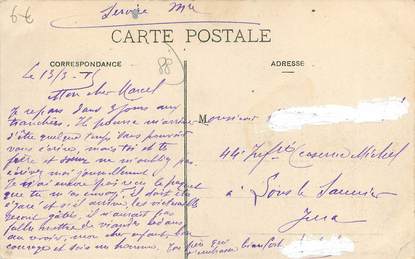 6€
Service Mre
CARTE POSTALE
CORRESPONDANCE
ADRESSE
88
Le 13/3 - 15
Mon cher Marcel
Je repars dans 3 jours aux
tranchées. Il pourra m'arriver
d'être quelque temps sans pouvoir
vous écrire, mais toi et ta
et ne m'oubliez pas
écrivez moi journellement
Je n'ai encore pas reçu le paquet
que tu m'as envoyé. Il doit être
égaré et s'il arrive, les victuailles
seront gâtées, il n'aurait pas
fallu mettre de viandes dedans
au revoir, mon cher enfant, bon
courage et sois un homme. Ton père qui
Monsieur
44e Infie Caserne Michel
à Lons le Saunier
Jura